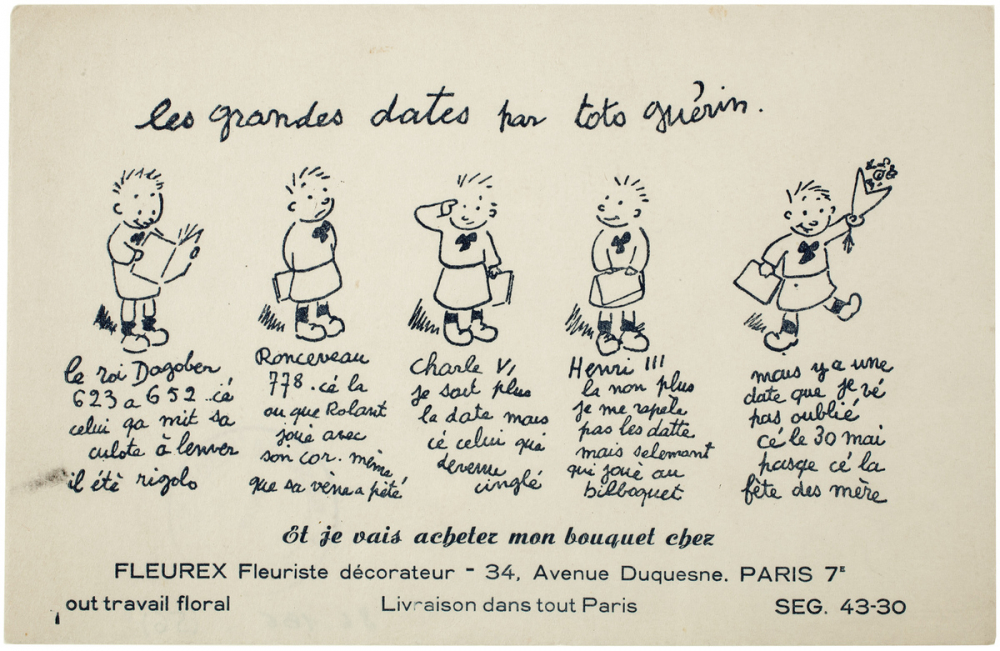 les grandes dates par toto guérin.
le roi Dagober
623 a 652 cé
celui qa mit sa
culote à lenver
il étè rigolo
Ronceveau
778. cé la
ou que Rolant
joué avec
son cor. même
que sa vène a pété
Charle VI
je sait plus
la date mais
cé celui qui
devenu
cinglé
Henri III
la non plus
je me rapele
pas les datte
mais selemant
qui joué au
bilboquet
mais y a une
date que je vé
pas oublié
cé le 30 mai
pasqe cé la
fête des mère
Et je vais acheter mon bouquet chez
FLEUREX Fleuriste décorateur - 34, Avenue Duquesne. PARIS 7ᴱ
out travail floral Livraison dans tout Paris SEG. 43-30